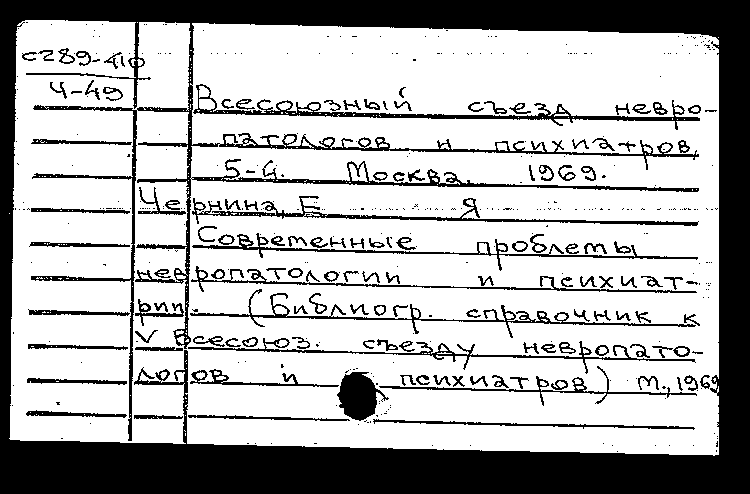 с289-410
4-49
Всесоюзный съезд невро-
патологов и психиатров,
5-й. Москва. 1969.
Чернина, Е Я
Современные проблемы
невропатологии и психиат-
рии. (Библиогр. справочник к
V Всесоюз. съезду невропато-
логов и психиатров) М., 1969